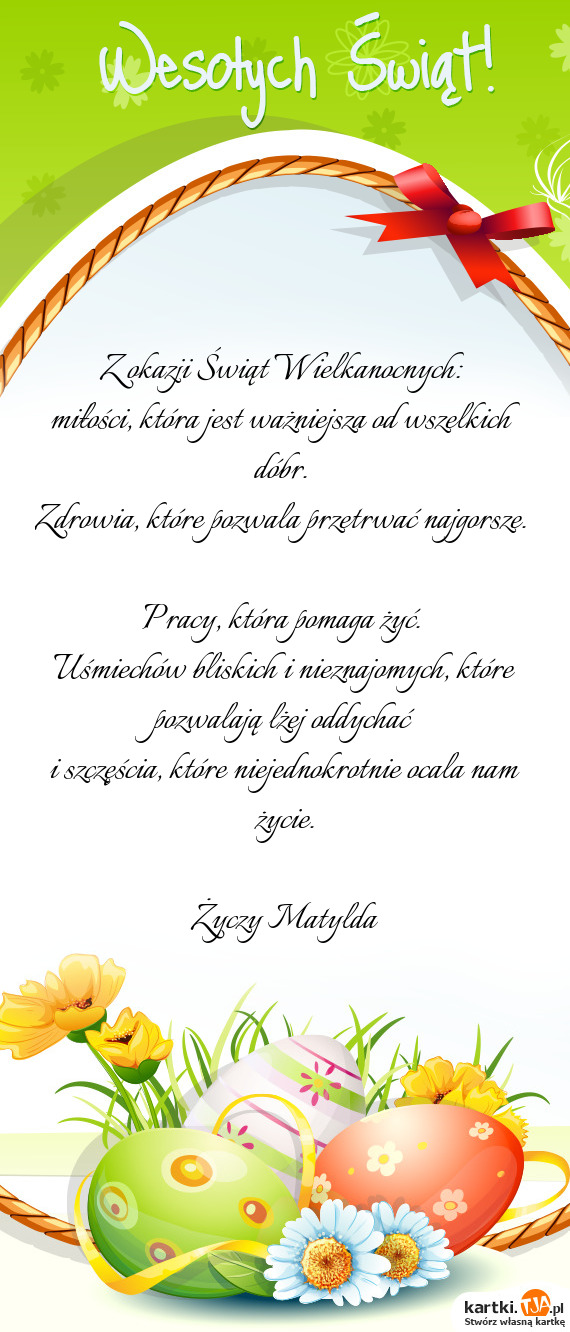 Wesołych Świąt!
Z okazji Świąt Wielkanocnych:
miłości, która jest ważniejsza od wszelkich
dóbr.
Zdrowia, które pozwala przetrwać najgorsze.
Pracy, która pomaga żyć.
Uśmiechów bliskich i nieznajomych, które
pozwalają lżej oddychać
i szczęścia, które niejednokrotnie ocala nam
życie.
Życzy Matylda
kartki.TJA.pl
Stwórz własną kartkę